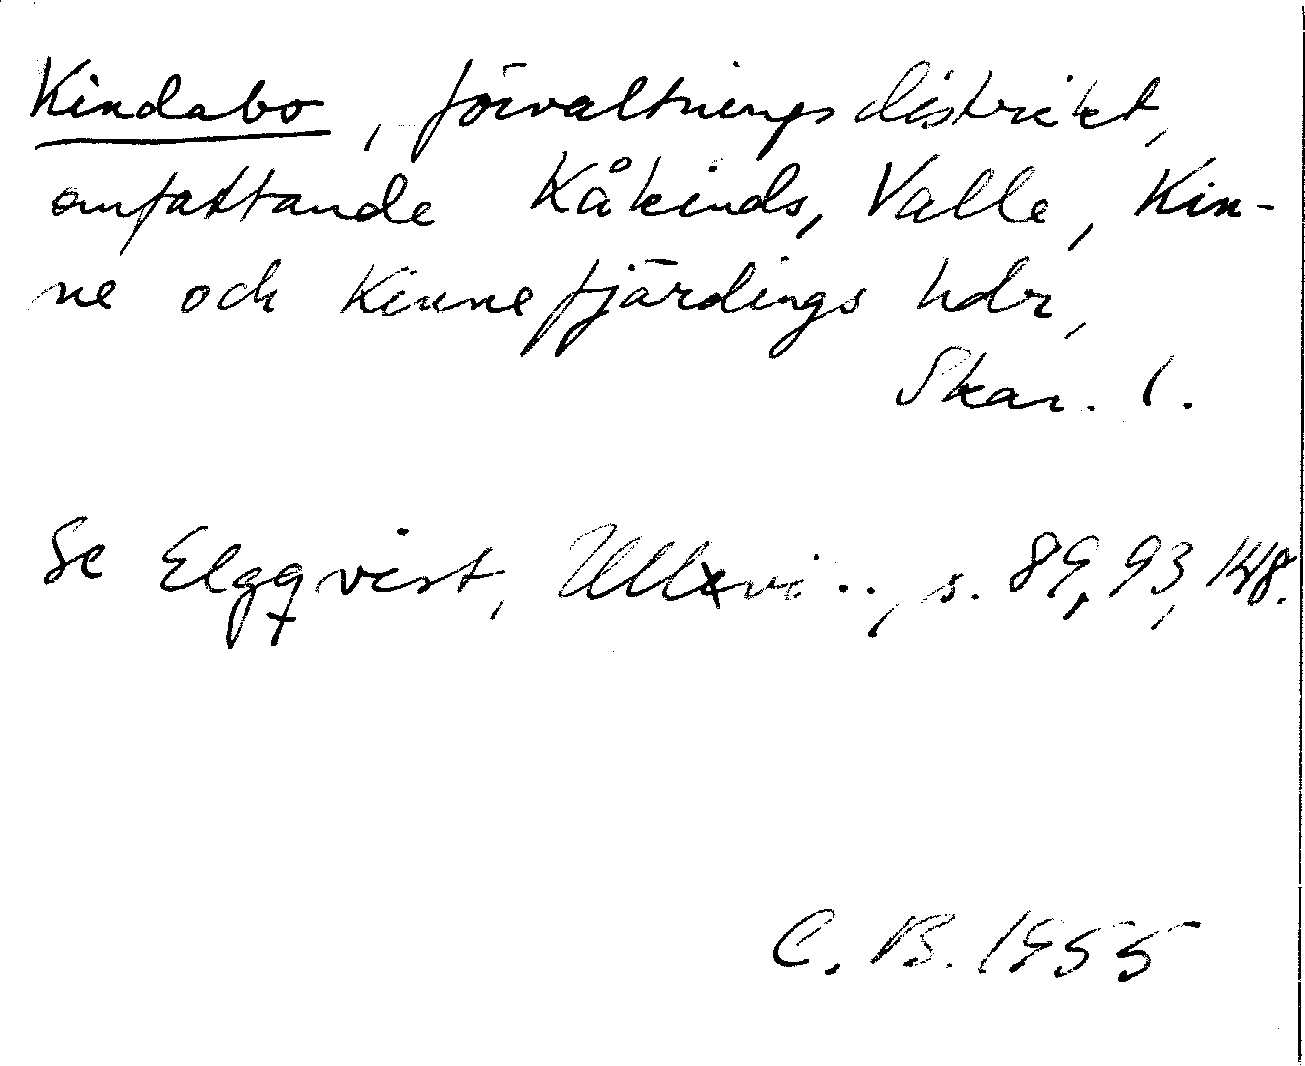 Kindabo, förvaltningsdistrikt,
omfattande Kåkinds, Valle, Kin-
ne och Kinnefjärdings hdr,
Skar. l.
Se Elgqvist, Ullevi.., s. 89, 93, 148.
C. B. 1955